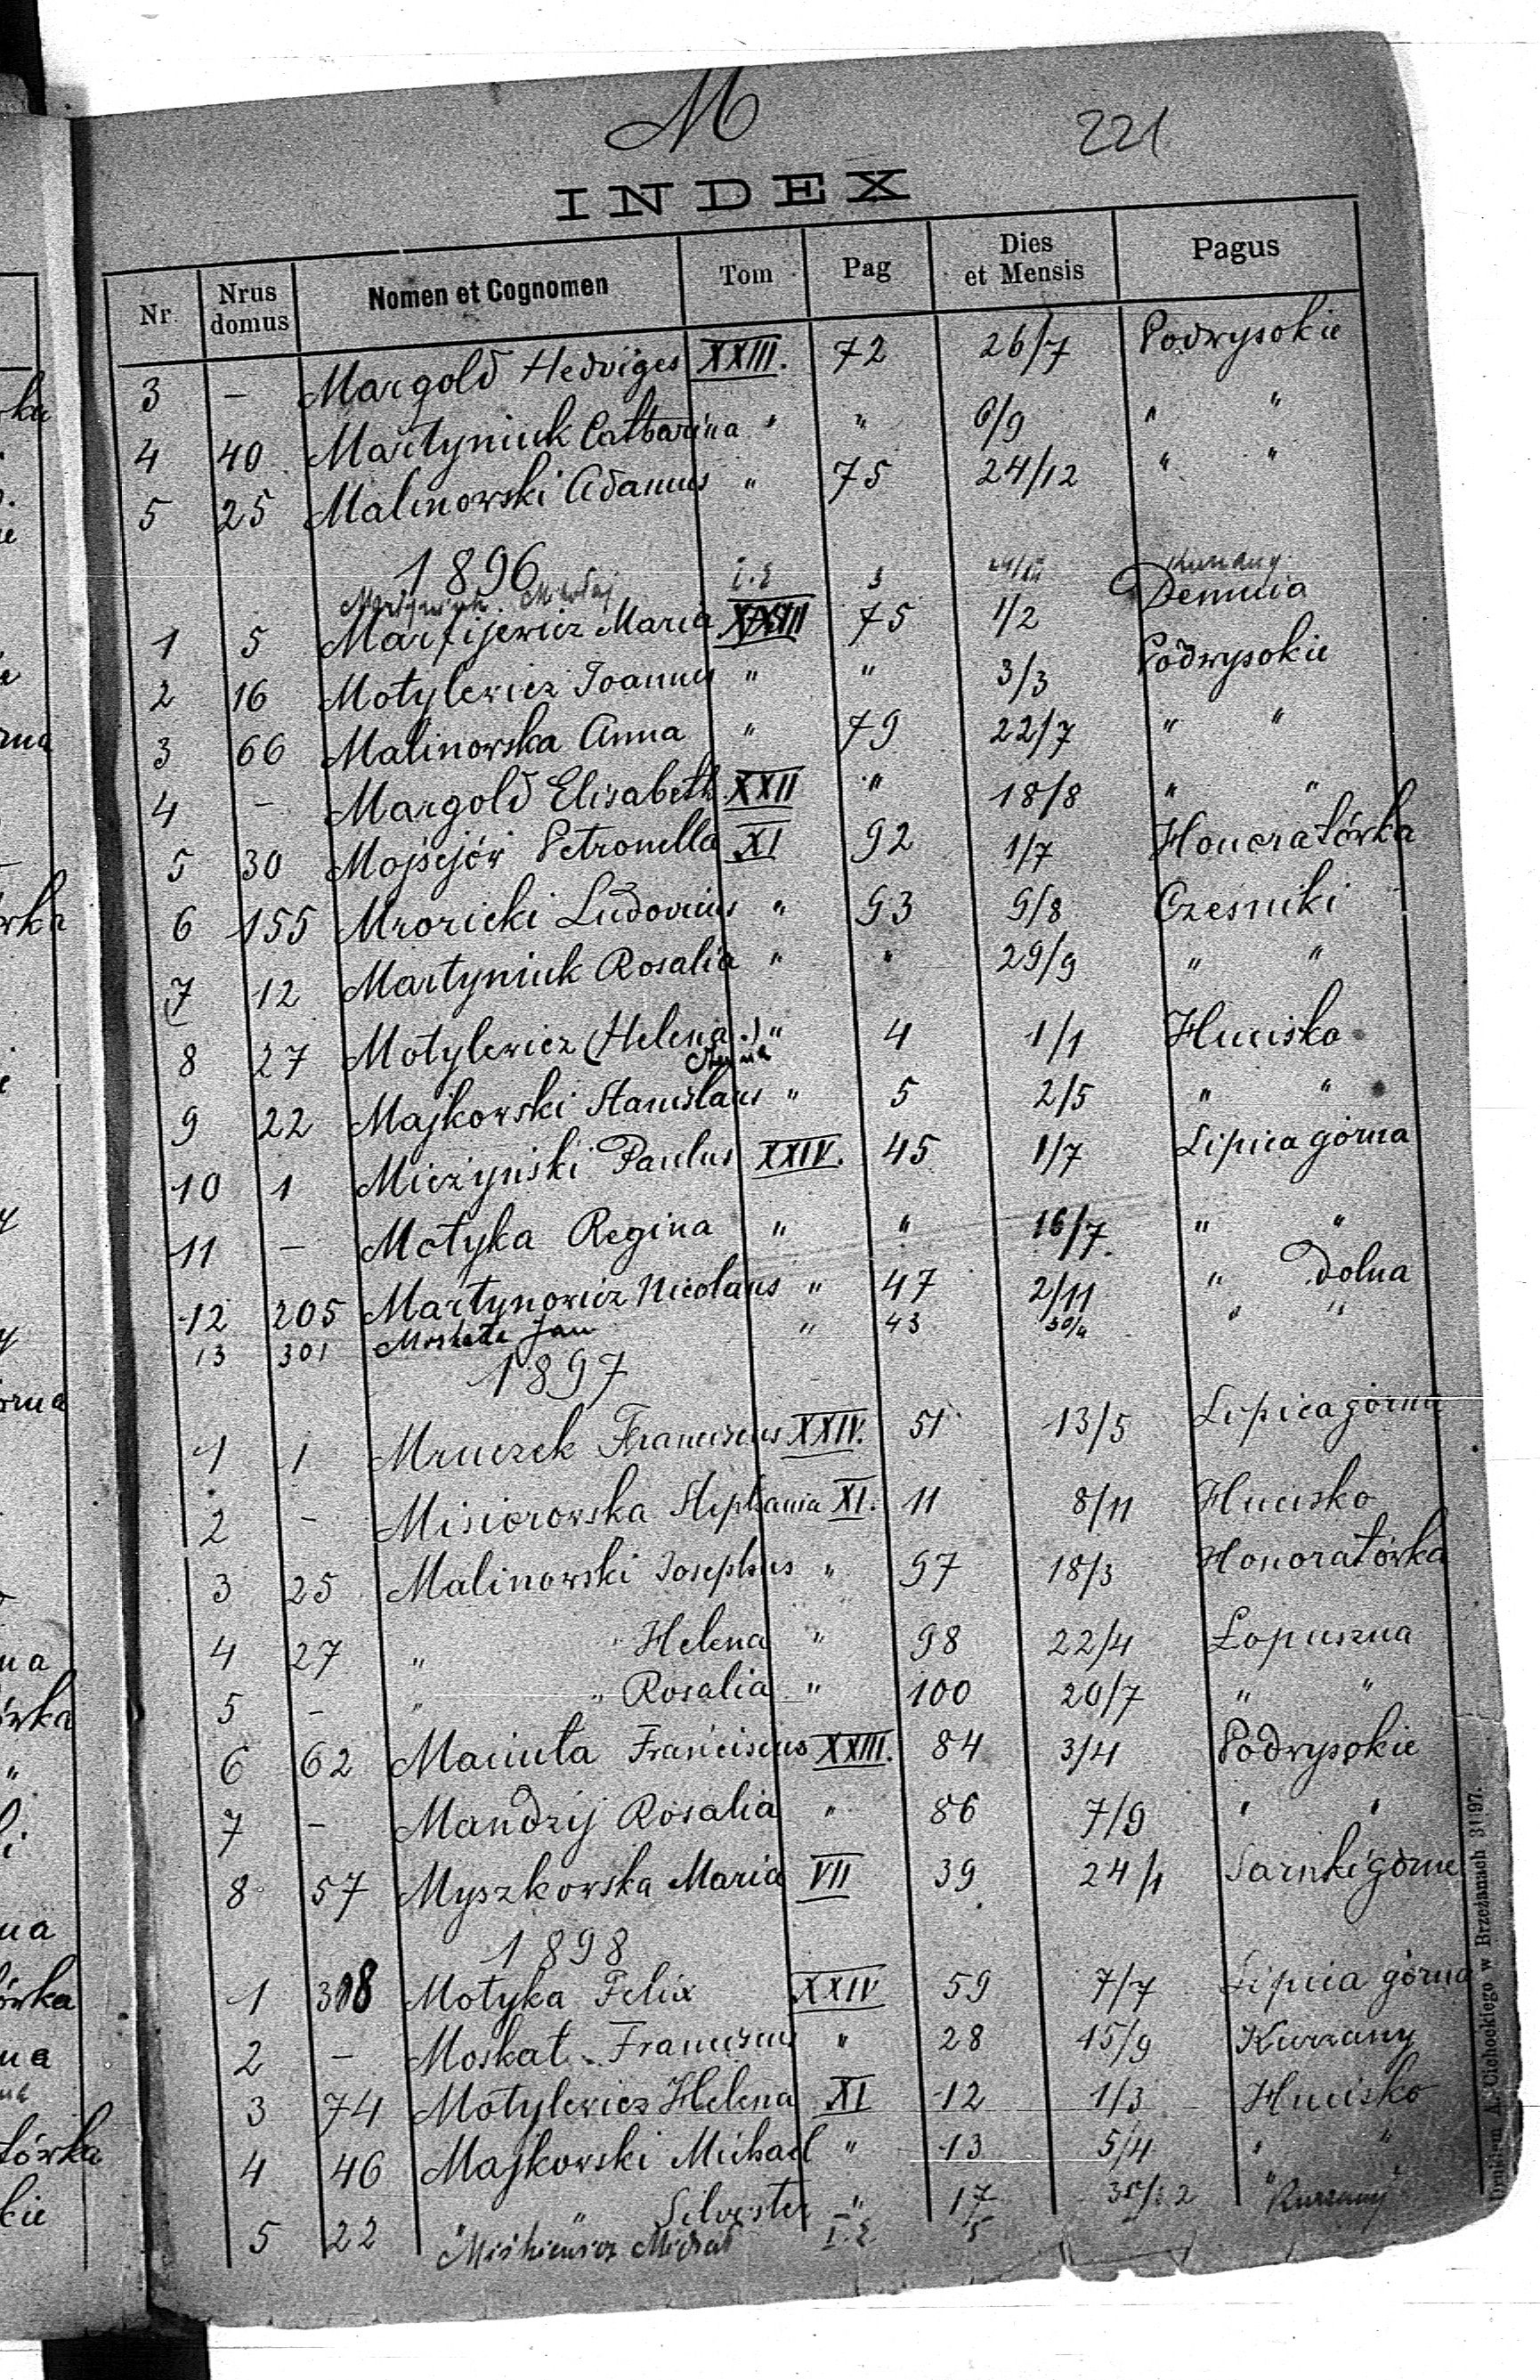 M
221
INDEX
Nr. Nrus domus Nomen et Cognomen Tom Pag Dies et Mensis Pagus
3 — Margold Hedviges XXIII. 72 26/7 Podwysokie
4 40 Martyniuk Catharina " " 6/9 " "
5 25 Malinowski Adamus " 75 24/12 " "
1896
Martyniuk Mikołaj I.E 3
1 5 Marfijewicz Maria XXIII 75 1/2 Demnia
2 16 Motylewicz Joannes " " 3/3 Podwysokie
3 66 Malinowska Anna " 79 22/7 " "
4 — Margold Elisabeth XXII " 18/8 " "
5 30 Mojsejów Petronella XI 92 1/7 Honoratówka
6 155 Mrozicki Ludovicus " 93 9/8 Czesniki
7 12 Martyniuk Rosalia " " 29/9 " "
8 27 Motylewicz (Helena.) " 4 1/1 Hucisko
9 22 Majkowski Stanislaus " 5 2/5 " "
10 1 Mieżyński Paulus XXIV. 45 1/7 Lipica górna
11 — Motyka Regina " " 16/7. " "
12 205 Martynowicz Nicolaus " 47 2/11 " Dolna
13 301 Moskata Jan " 43 " "
1897
1 1 Mruczek Franciscus XXIV. 51 13/5 Lipica górna
2 — Misiorowska Stephania XI. 11 8/11 Hucisko
3 25 Malinowski Josephus " 97 18/3 Honoratówka
4 27 " " Helena " 98 22/4 Łopuszna
5 — " " Rosalia " 100 20/7 " "
6 62 Maciuta Franciscus XXIII. 84 3/4 Podwysokie
7 — Mandzij Rosalia " 86 7/9 " "
8 57 Myszkowska Maria VII 39 24/1 Sarnki górne
1898
1 318 Motyka Felix XXIV 59 7/7 Lipica górna
2 — Moskat Franciscus " 28 15/9 Kurzany
3 74 Motylewicz Helena XI 12 1/3 Hucisko
4 46 Majkowski Michael " 13 5/4 " "
5 22 " " Silvester " 17 " "
Miśkiewicz Michał I.E 5 Kurzany
Drukiem A. Cichockiego w Brzeżanach 3197.